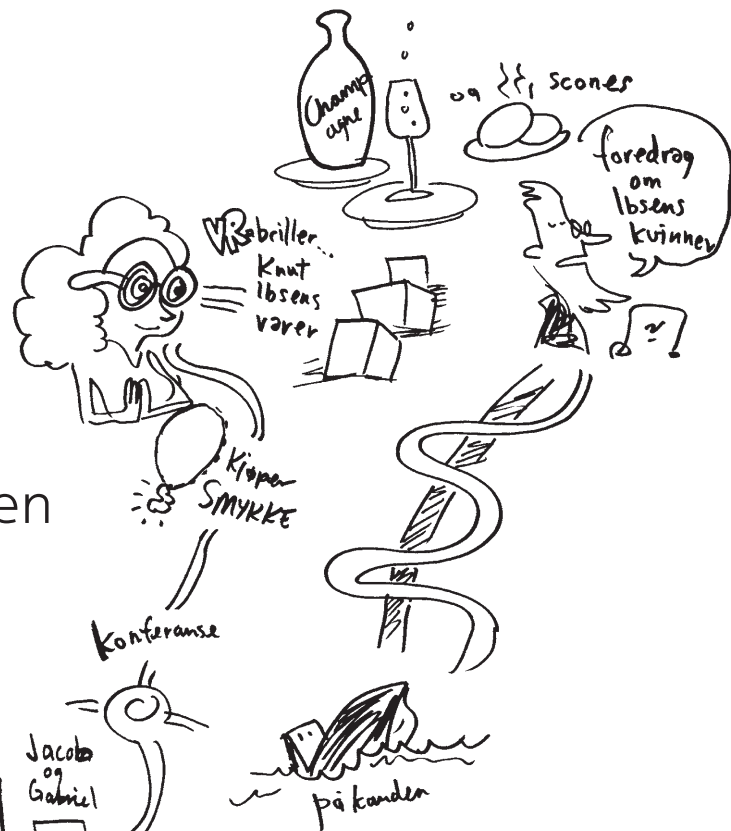 Champ
agne
og
scones
foredrag
om
Ibsens
kvinner
VRebriller...
Knut
Ibsens
varer
Kjøper
SMYKKE
en
Konferanse
Jacob
og
Gabriel
på kanden